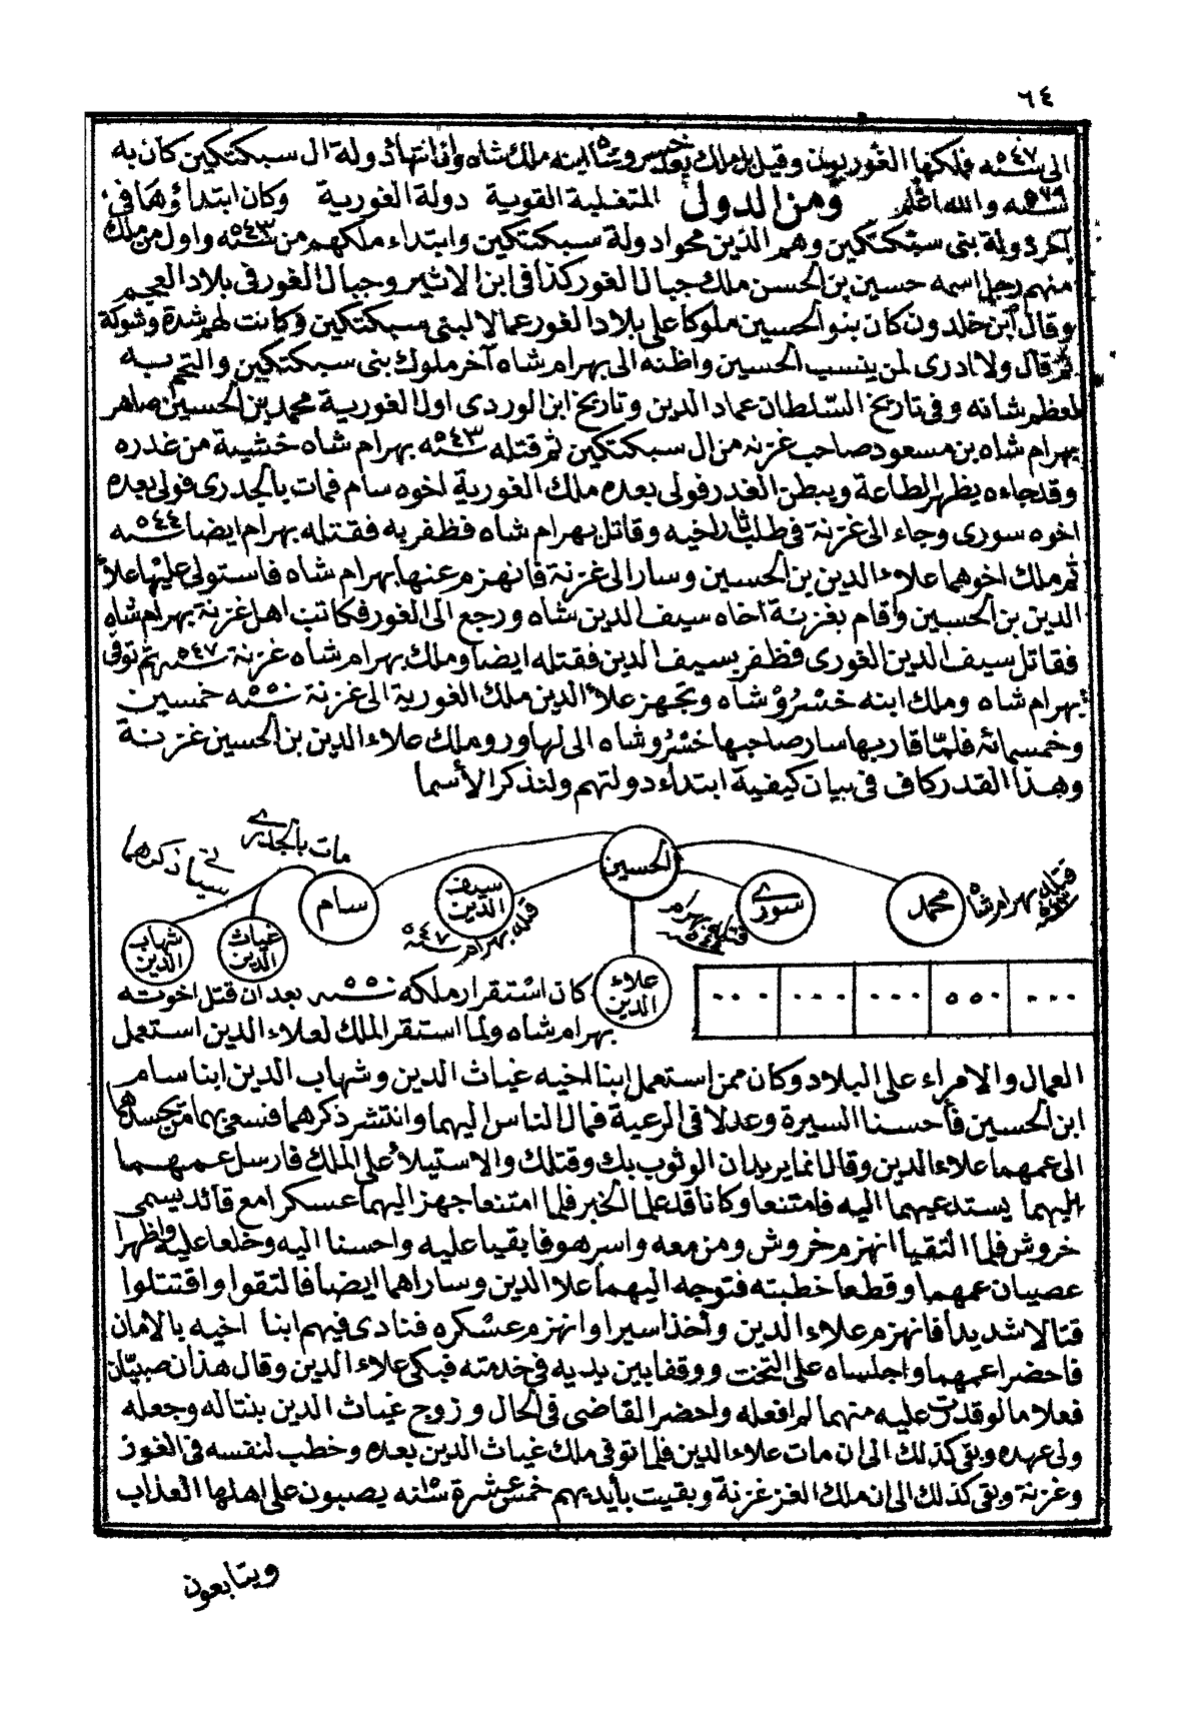 ٦٤
الى سنه ٥٤٧ فملكها الغوريون وقيل بل ملك بعد خسروشاه ابنه ملك شاه وان انتهاء دولة ال سبكتكين كان به
سنه ٥٧٩ والله اعلم ومن الدول المتغلبة القوية دولة الغورية وكان ابتداؤها في
آخر دولة بنى سبكتكين وهم الذين محوا دولة سبكتكين وابتداء ملكهم من سنه ٥٤٣ واول من ملك
منهم رجل اسمه حسين بن الحسن ملك جبال الغور كذا في ابن الاثير وجبال الغور في بلاد العجم
وقال ابن خلدون كان بنو الحسين ملوكا على بلاد الغور عمالا لبنى سبكتكين وكانت لهم شدة وشوكة
ثم قال ولا ادرى لمن ينسب الحسين واظنه الى بهرام شاه آخر ملوك بنى سبكتكين والتحم به
لعظم شانه وفى تاريخ السلطان عماد الدين وتاريخ ابن الوردى اول الغورية محمد بن الحسين صاهر
بهرام شاه بن مسعود صاحب غزنه من ال سبكتكين ثم قتله سنه ٥٤٣ بهرام شاه خشية من غدره
وقد جاءه يظهر الطاعة ويبطن الغدر فولى بعده ملك الغورية اخوه سام فمات بالجدرى فولى بعده
اخوه سورى وجاء الى غزنة في طلب ثار اخيه وقاتل بهرام شاه فظفر به فقتله بهرام ايضا سنه ٥٤٤
ثم ملك اخوهما علاء الدين بن الحسين وسار الى غزنة فانهزم عنها بهرام شاه فاستولى عليها علاء
الدين بن الحسين واقام بغزنة اخاه سيف الدين شاه ورجع الى الغور فكاتب اهل غزنة بهرام شاه
فقاتل سيف الدين الغورى فظفر بسيف الدين فقتله ايضا وملك بهرام شاه غزنة سنه ٥٤٧ ثم توفى
بهرام شاه وملك ابنه خسروشاه وتجهز علاء الدين ملك الغورية الى غزنة سنه ٥٥٠ خمسين
وخمسمائة فلما قاربها سار صاحبها خسروشاه الى لهاور وملك علاء الدين بن الحسين غزنة
وهذا القدر كاف في بيان كيفية ابتداء دولتهم ولنذكر الأسما
الحسين
محمد
قتله بهرام شاه ٥٤٣
سورے
قتله بهرام سنه ٥٤٤
سيف الدين
قتله بهرام سنه ٥٤٧
سام
مات بالجدرے
سياتے ذكرهما
غياث الدين
شهاب الدين
٠٠٠ | ٥٥٠ | ٠٠٠ | ٠٠٠ | ٠٠٠
علاء الدين كان استقرار ملكه سنه ٥٥٠ بعد ان قتل اخوته
بهرام شاه ولما استقر الملك لعلاء الدين استعمل
العمال والامراء على البلاد وكان ممن استعمل ابنا اخيه غياث الدين وشهاب الدين ابنا سام
ابن الحسين فأحسنا السيرة وعدلا في الرعية فمال الناس اليهما وانتشر ذكرهما فسعى بهما من يحسدهما
الى عمهما علاء الدين وقال انما يريدان الوثوب بك وقتلك والاستيلاء على الملك فارسل عمهما
اليهما يستدعيهما اليه فامتنعا وكانا قد علما الخبر فلما امتنعا جهز اليهما عسكرا مع قائد يسمى
خروش فلما التقيا انهزم خروش ومن معه واسر هو فابقيا عليه واحسنا اليه وخلعا عليه واظهرا
عصيان عمهما وقطعا خطبته فتوجه اليهما علا الدين وسارا هما ايضا فالتقوا واقتتلوا
قتالا شديدا فانهزم علاء الدين واخذ اسيرا وانهزم عسكره فنادى فيهم ابنا اخيه بالامان
فاحضرا عمهما واجلساه على التخت ووقفا بين يديه في خدمته فبكى علاء الدين وقال هذان صبيان
فعلا ما لو قدرت عليه منهما لم افعله واحضر القاضى في الحال وزوج غياث الدين بنتا له وجعله
ولى عهده وبقى كذلك الى ان مات علاء الدين فلما توفى ملك غياث الدين بعده وخطب لنفسه في الغور
وغزنة وبقى كذلك الى ان ملك الغز غزنة وبقيت بأيديهم خمس عشرة سنه يصبون على اهلها العذاب
ويتابعون